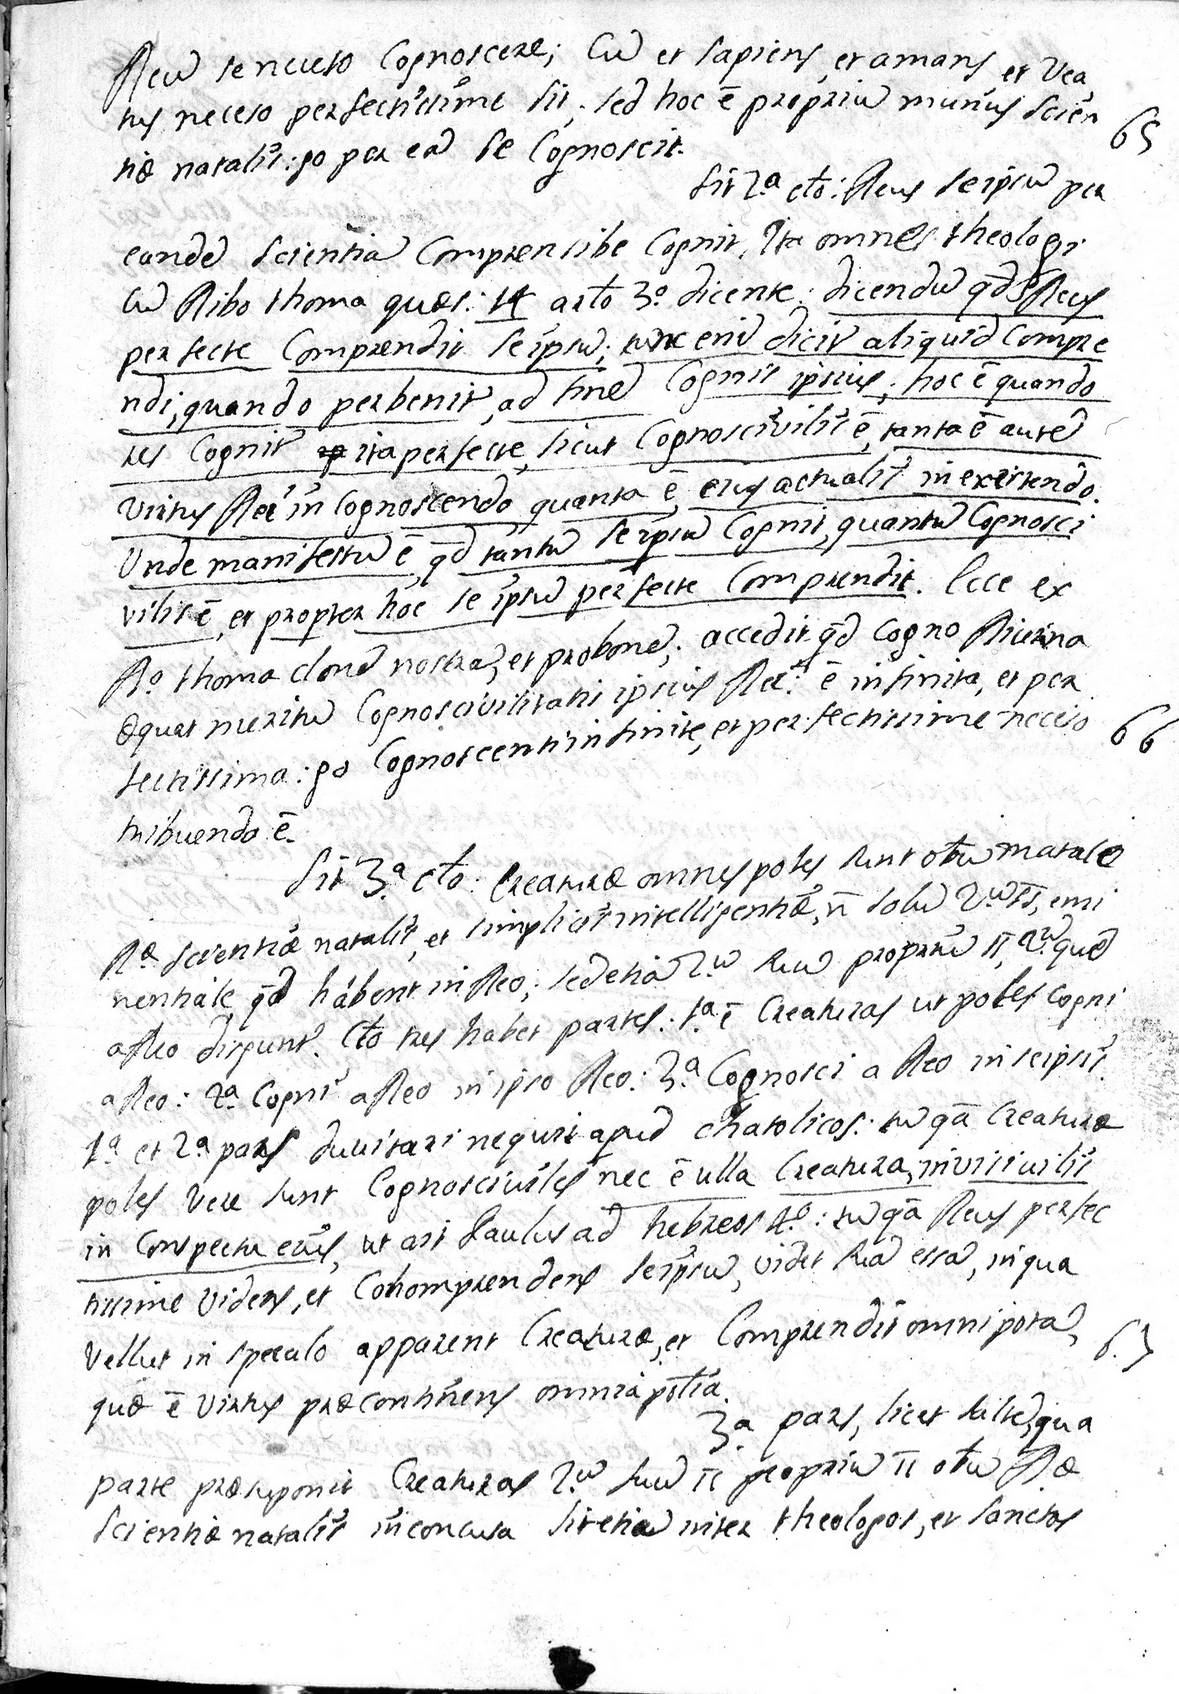 Deũ se neceso Cognoscere; Cũ et sapiens, et amans et Vea
tus neceso perfectisime sit, sed hoc ē propriũ munus scien
tiæ natalis: go per eã se Cognoscit. 65
Sit 2.ª cto: Deus seipsũ per
eandẽ scientiã Comprensibe Cognit, Ita omnes theologi
Cũ Dibo thoma quæs: 14 arto 3.º dicente: dicendũ qd Deus
perfecte Comprendit seipsũ; tunc enĩ dicit aliquid Compre
ndi, quando perbenit, ad finẽ Cognis ipsius, hoc ē quando
res Cognit ita perfecte, sicut Cognoscivilis ē, tanta ē autẽ
Virtus Dei in Cognoscendo, quanta ē eius actualis in existendo.
Unde manifestũ ē, qd tantũ seipsũ Cognit, quantũ Cognosci
vilis ē, et propter hoc se ipsũ perfecte Comprendit. Ecce ex
Do thoma clonẽ nostrã, et probonẽ; accedit qd Cogno Divina
æquat meritũ Cognoscivilitati ipsius Dei ē infinita, et per
fectissima: go Cognoscenti infinite, et perfectissime neceso 66
tribuendo ē.
Sit 3.ª cto: Creaturæ omnes poles sunt otũ matale
Dæ scientiæ natalis, et simplicis intelligentiæ, ñ solũ 2.ũ , emi
nentiale, qd habent in Deo; sed etiã 2.ũ suũ propriũ , 2.ũ quẽ
a Deo distunt. Cto tres habet partes: 1.ª ē Creaturas ut poles Cogni
a Deo: 2.ª Cogni a Deo in ipso Deo: 3.ª Cognosci a Deo in seipsis.
1.ª et 2.ª pars duvitari nequit apud chatolicos: tũ qã Creaturæ
poles Vere sunt Cognoscivules nec ē ulla Creatura, invisivilis
in Conspectu eius, ut ait Paulus ad hebreos 4.º: tũ qã Deus perfec
tissime Videns, et Cohomprendens seipsũ, videt suã esrã, in qua
Vellut in speculo apparent Creaturæ, et Comprendit omnipotã, 67
quæ ē Virtus præcontinens omnia potia.
3.ª pars, licet saltẽ, qua
parte præsuponit Creaturas 2.ũ suũ propriũ otũ Dæ
Scientiæ natalis inconcusa sit etiã inter theologos, et sanctos